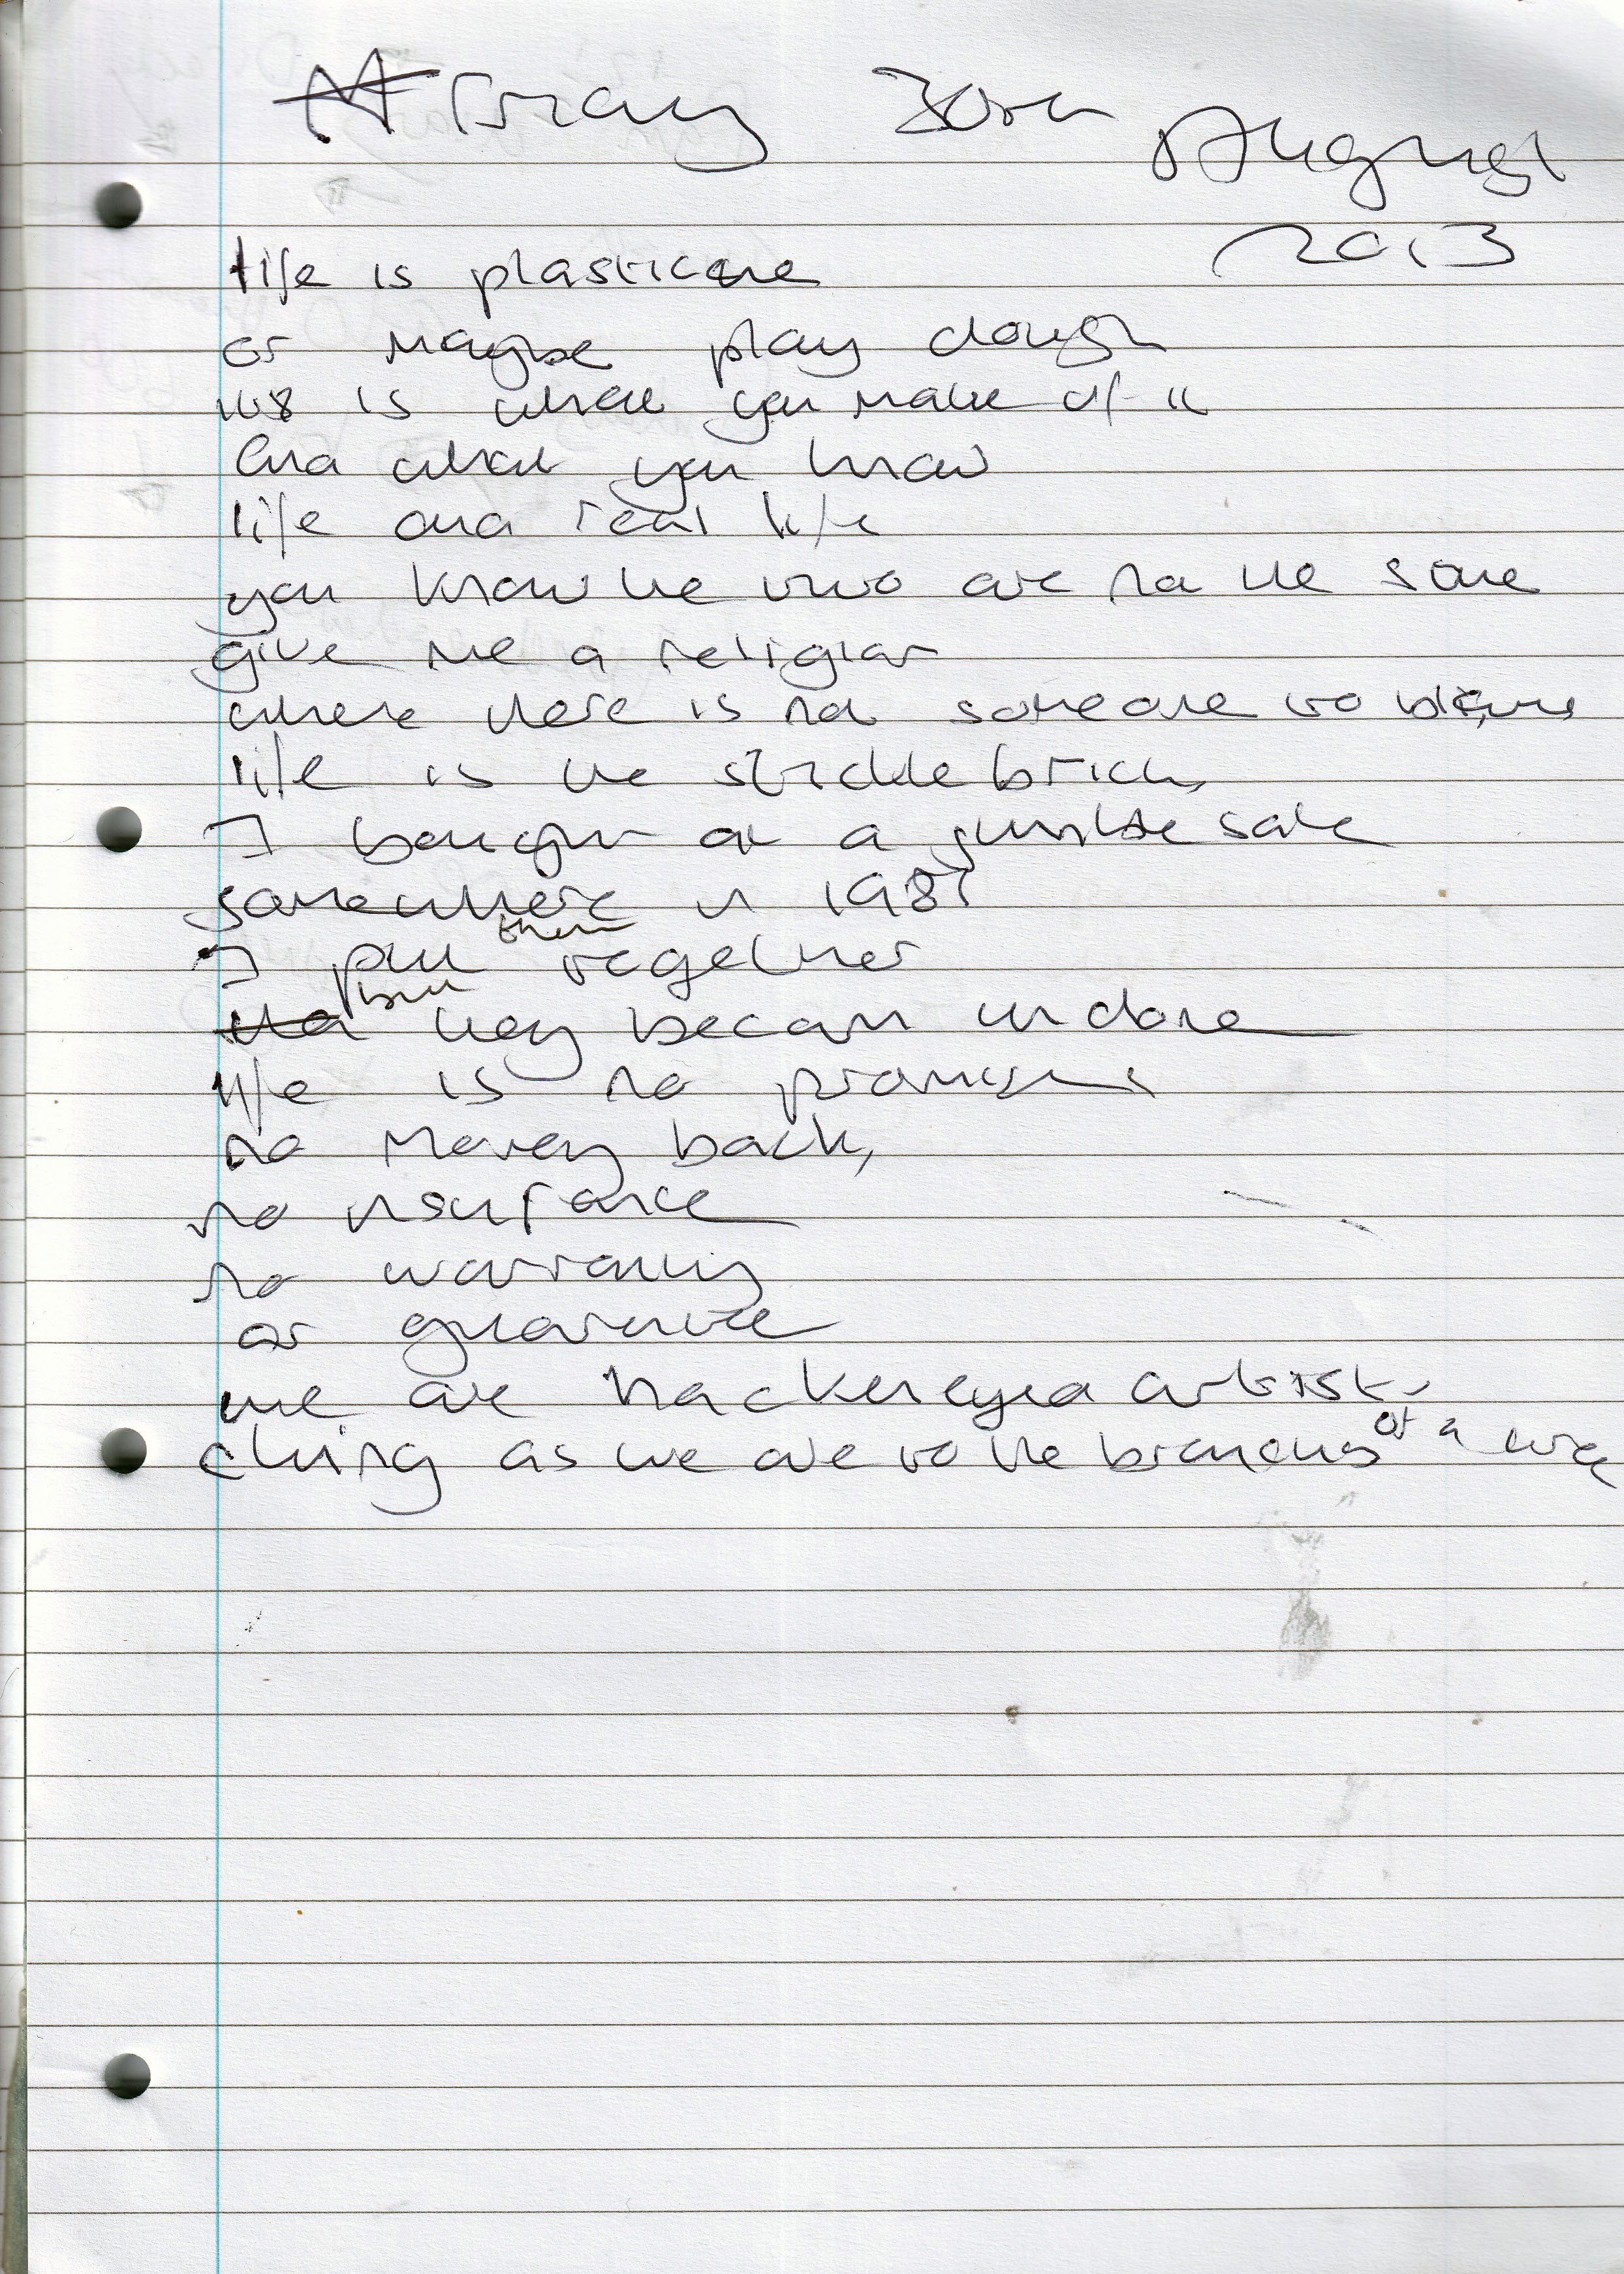 Friday 30th August
2013
life is plasticene
or maybe play dough
its is what you make of it
and what you know
life and real life
you know the two are no the same
give me a religion
where there is not someone to blame
life is the stickle brick
I bought at a jumble sale
somewhere in 1987
I put them together
but they becam undone
life is no promises
no money back,
no insurance
no warranty
or guarantee
we are hackeneyed artist
cling as we are to the branches of a tree